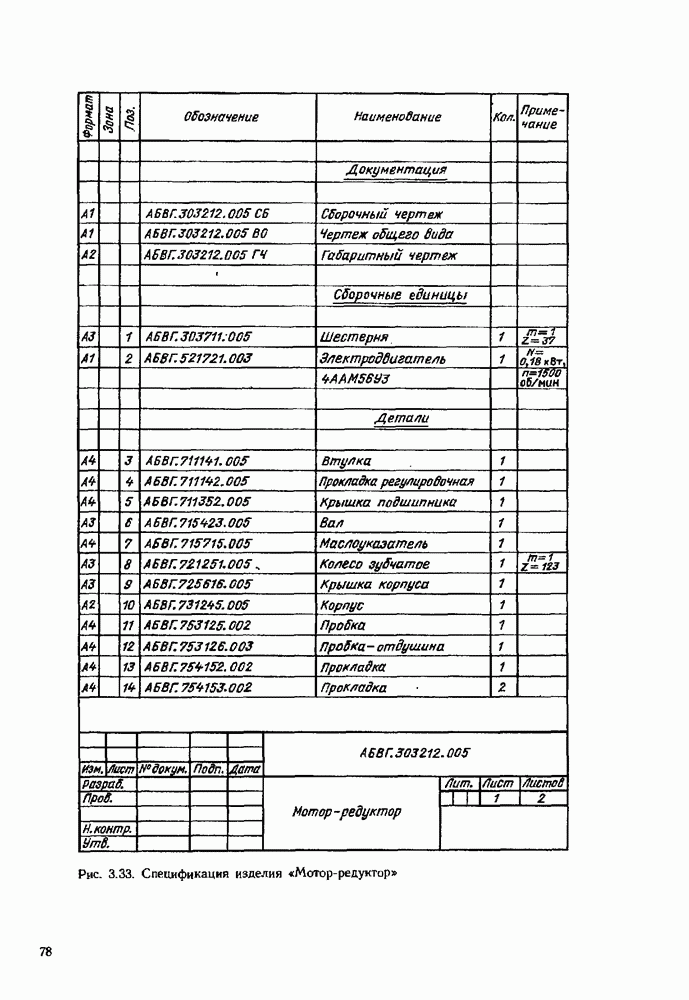 Формат Зона Поз. Обозначение Наименование Кол. Приме-
чание
Документация
А1 АБВГ.303212.005 СБ Сборочный чертеж
А1 АБВГ.303212.005 ВО Чертеж общего вида
А2 АБВГ.303212.005 ГЧ Габаритный чертеж
Сборочные единицы
А3 1 АБВГ.303711.005 Шестерня 1 m=1
Z=37
А1 2 АБВГ.521721.003 Электродвигатель 1 N=
0,18 кВт,
4ААМ56У3 n=1500
об/мин
Детали
А4 3 АБВГ.711141.005 Втулка 1
А4 4 АБВГ.711142.005 Прокладка регулировочная 1
А4 5 АБВГ.711352.005 Крышка подшипника 1
А3 6 АБВГ.715423.005 Вал 1
А4 7 АБВГ.715715.005 Маслоуказатель 1
А3 8 АБВГ.721251.005 Колесо зубчатое 1 m=1
Z=123
А3 9 АБВГ.725616.005 Крышка корпуса 1
А2 10 АБВГ.731245.005 Корпус 1
А4 11 АБВГ.753125.002 Пробка 1
А4 12 АБВГ.753126.003 Пробка-отдушина 1
А4 13 АБВГ.754152.002 Прокладка 1
А4 14 АБВГ.754153.002 Прокладка 2
АБВГ.303212.005
Изм. Лист № докум. Подп. Дата
Разраб. Лит. Лист Листов
Пров. 1 2
Мотор-редуктор
Н.контр.
Утв.
Рис. 3.33. Спецификация изделия «Мотор-редуктор»
78